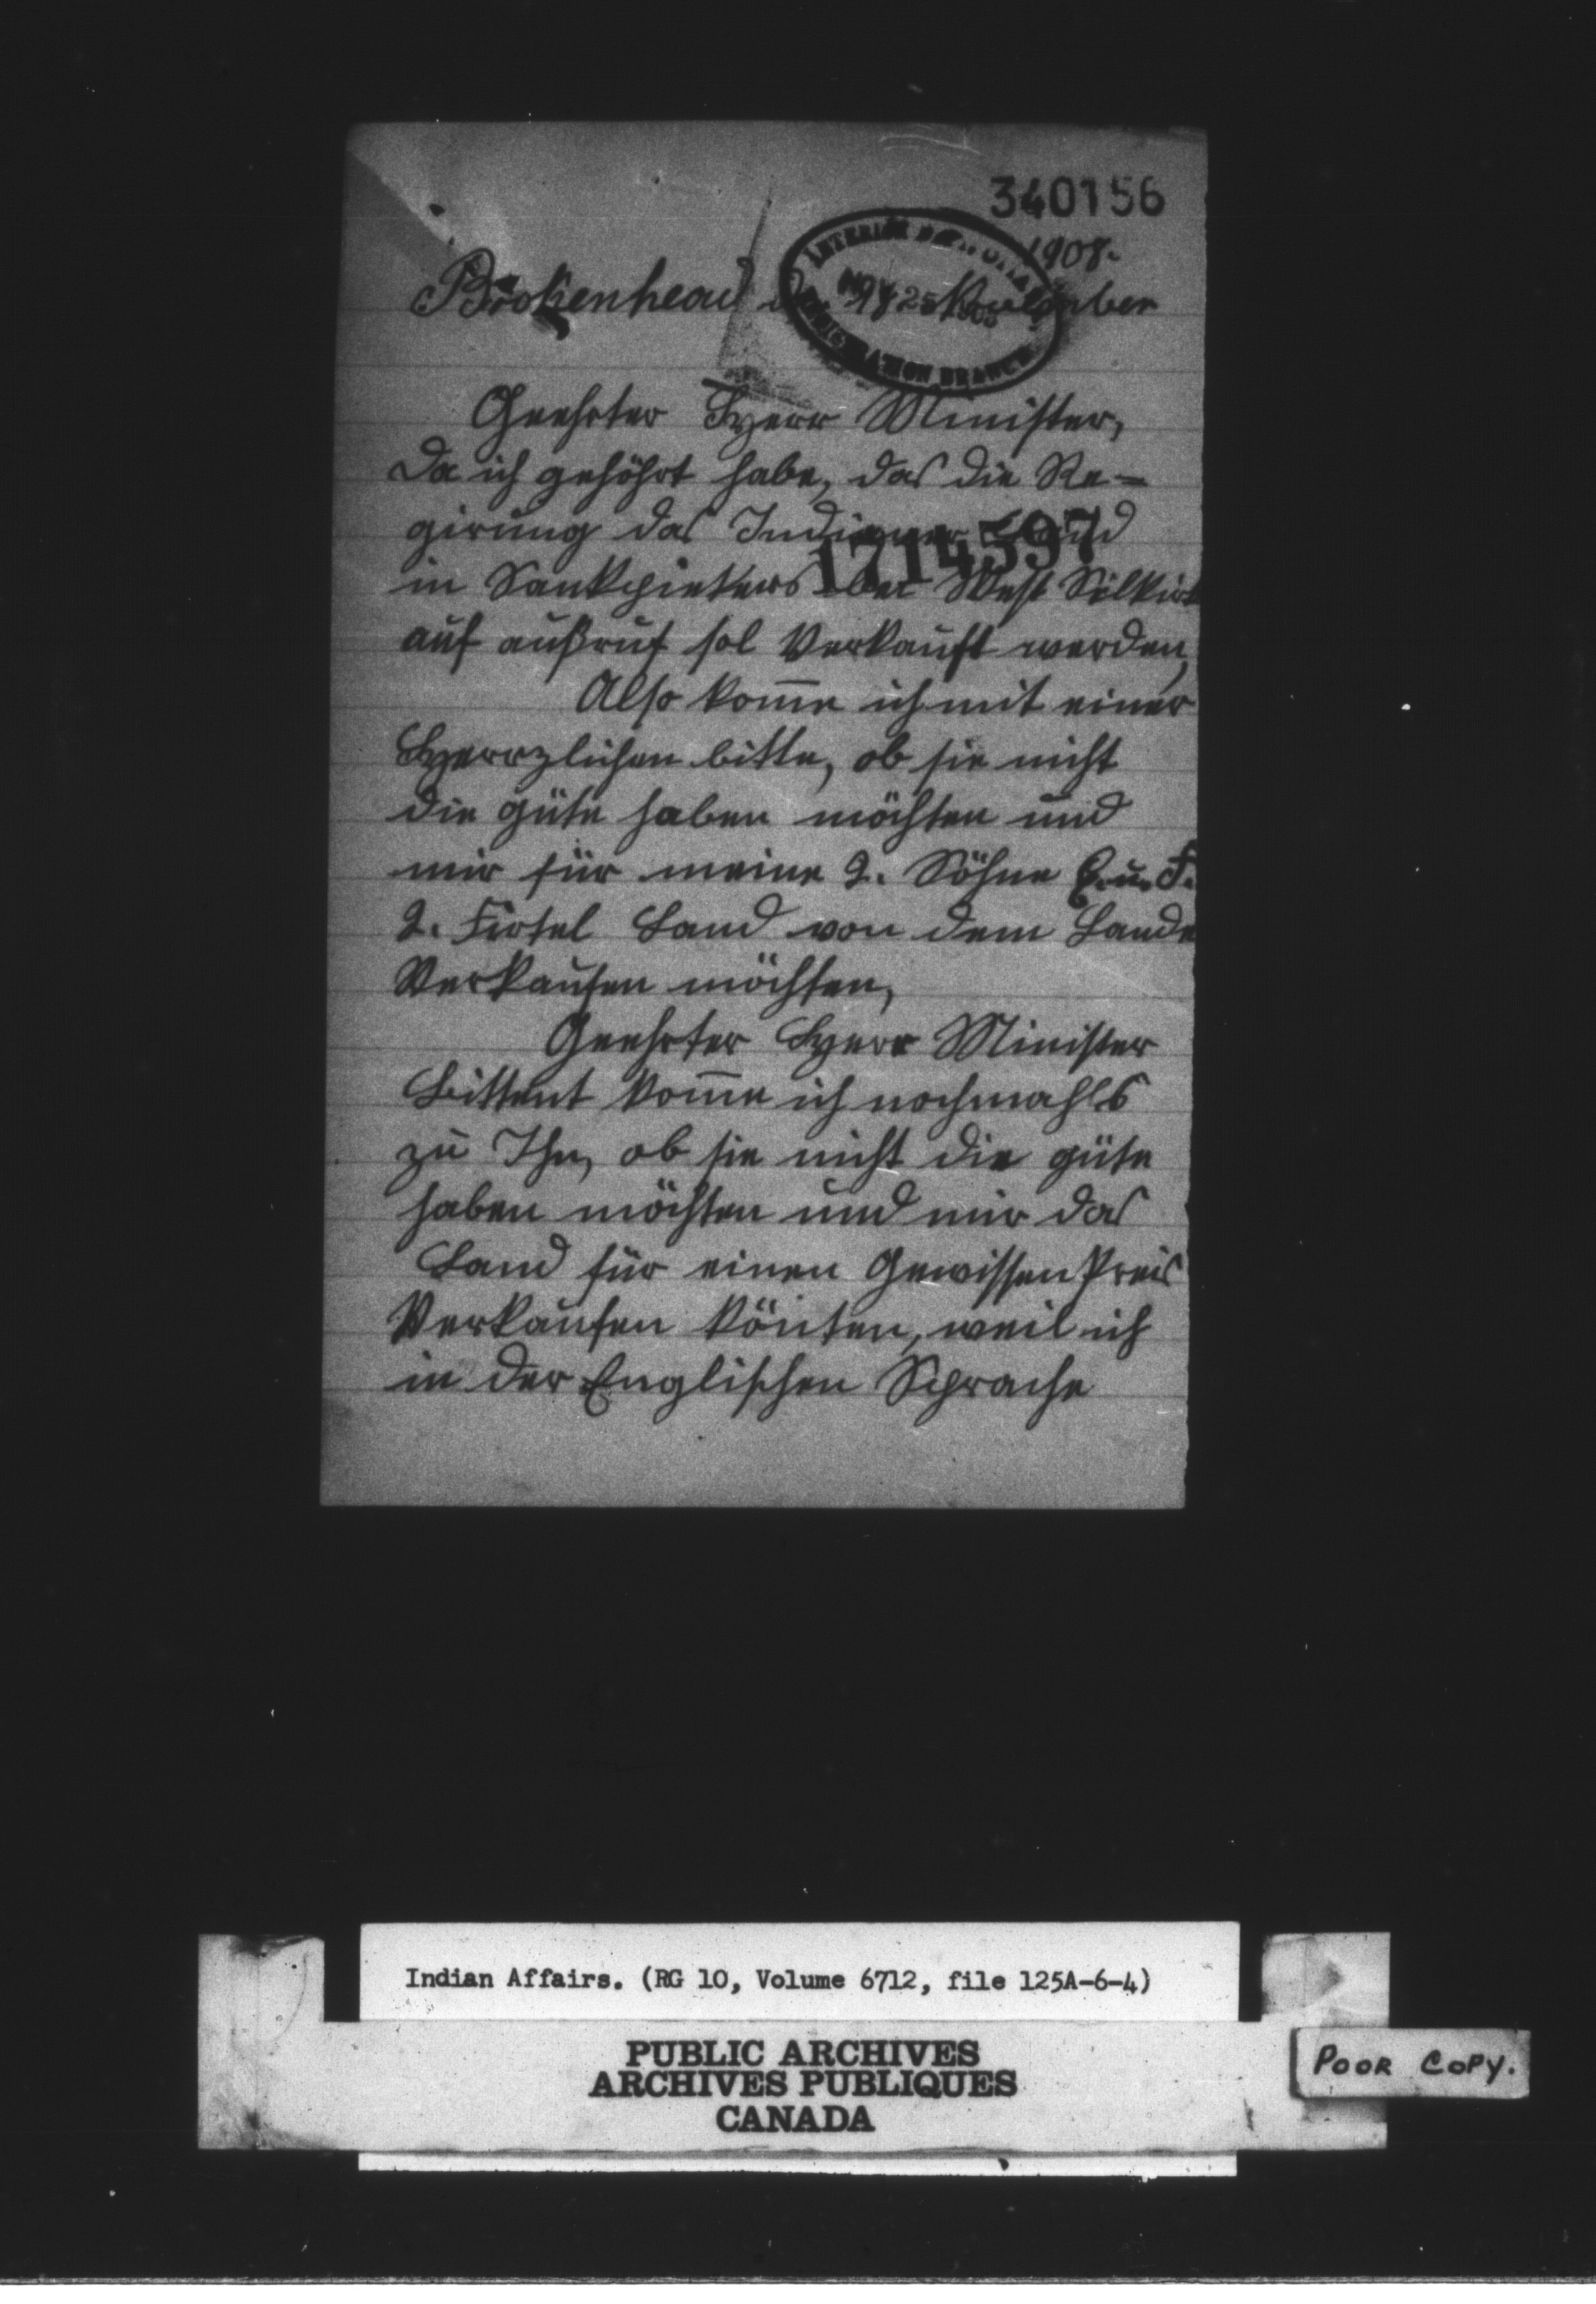 340156
1908.
Brokenhead November
INTERIOR
NOV 25 1908
IMMIGRATION BRANCH
Geehrter Herr Minister,
Da ich gehöhrt habe, das die Re=
girung das Indianer Land
1714397
in Sankpieters bei West Silkirk
auf außruf sol Verkauft werden,
Also kom̅e ich mit einer
Herrzlichen bitte, ob sie nicht
die güte haben möchten und
mir für meine 2. Söhne E. u. F.
2. Firtel Land von dem Lande
Verkaufen möchten,
Geehrter Herr Minister
Bittent kom̅e ich nochmahls
zu Ihn, ob sie nicht die güte
haben möchten und mir das
Land für einen Gewissen Preis
Verkaufen könten, weil ich
in der Englischen Sprache
Indian Affairs. (RG 10, Volume 6712, file 125A-6-4)
PUBLIC ARCHIVES
ARCHIVES PUBLIQUES
CANADA
POOR COPY.